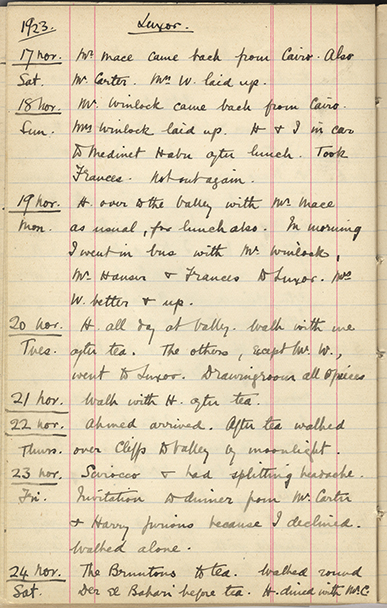 1923. Luxor.
17 Nov. Mr Mace came back from Cairo. Also
Sat. Mr. Carter. Mrs W. laid up.
18 Nov. Mr. Winlock came back from Cairo.
Sun. Mrs Winlock laid up. H & I in car
to Medinet Habu after lunch. Took
Frances. Not out again.
19 Nov. H. over to the Valley with Mr Mace
Mon. as usual, for lunch also. In morning
I went in bus with Mr Winlock,
Mr Hauser & Frances to Luxor. Mrs
W. better & up.
20 Nov. H. all day at Valley. Walk with me
Tues. after tea. The others, except Mr. W.,
went to Luxor. Drawingroom all
21 Nov. Walk with H. after tea.
22 Nov. Ahmed arrived. After tea walked
Thurs. over Cliffs to Valley by moonlight.
23 Nov. Scirocco & had splitting headache.
Fri. Invitation to dinner from Mr. Carter
& Harry furious because I declined.
Walked alone.
24 Nov. The Bruntons to tea. Walked round
Sat. Der el Bahari before tea. H. dined with Mr. C.